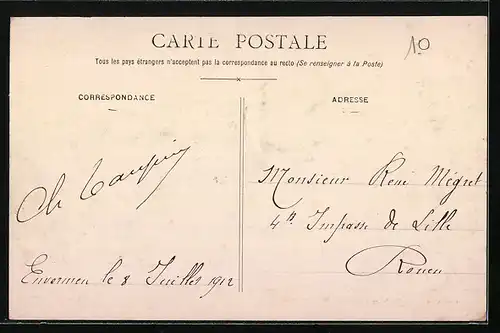 CARTE POSTALE
10
Tous les pays étrangers n'acceptent pas la correspondance au recto (Se renseigner à la Poste)
CORRESPONDANCE
Ch
Envermeu le 8 Juillet 1912
ADRESSE
Monsieur René Mégret
Impasse de Lille
Rouen